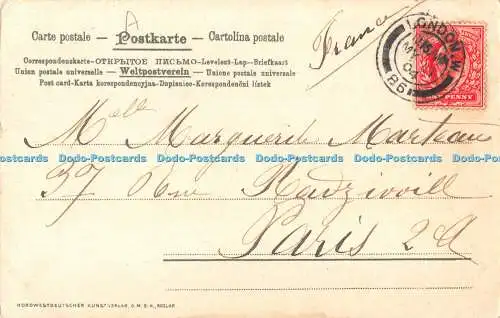 A
Carte postale - Postkarte - Cartolina postale
Correspondenzkarte-ОТКРЫТОЕ ПИСЬМО-Levelezö-Lap-Briefkaart
Union postale universelle - Weltpostverein - Unione postale universale
Post card-Karta korespondencyjna-Dopisnice-Korespondenčni listek
France
LONDON.W
MY
04
85
ONE PENNY
Mlle Marguerite Marteau
Dodo-Postcards Dodo-Postcards Dodo-Postcards Dodo-Postcards Dodo-Postcards
37 Rue Radziwill
Paris 2d
NORDWESTDEUTSCHER KUNSTVERLAG, G.M.B.H.